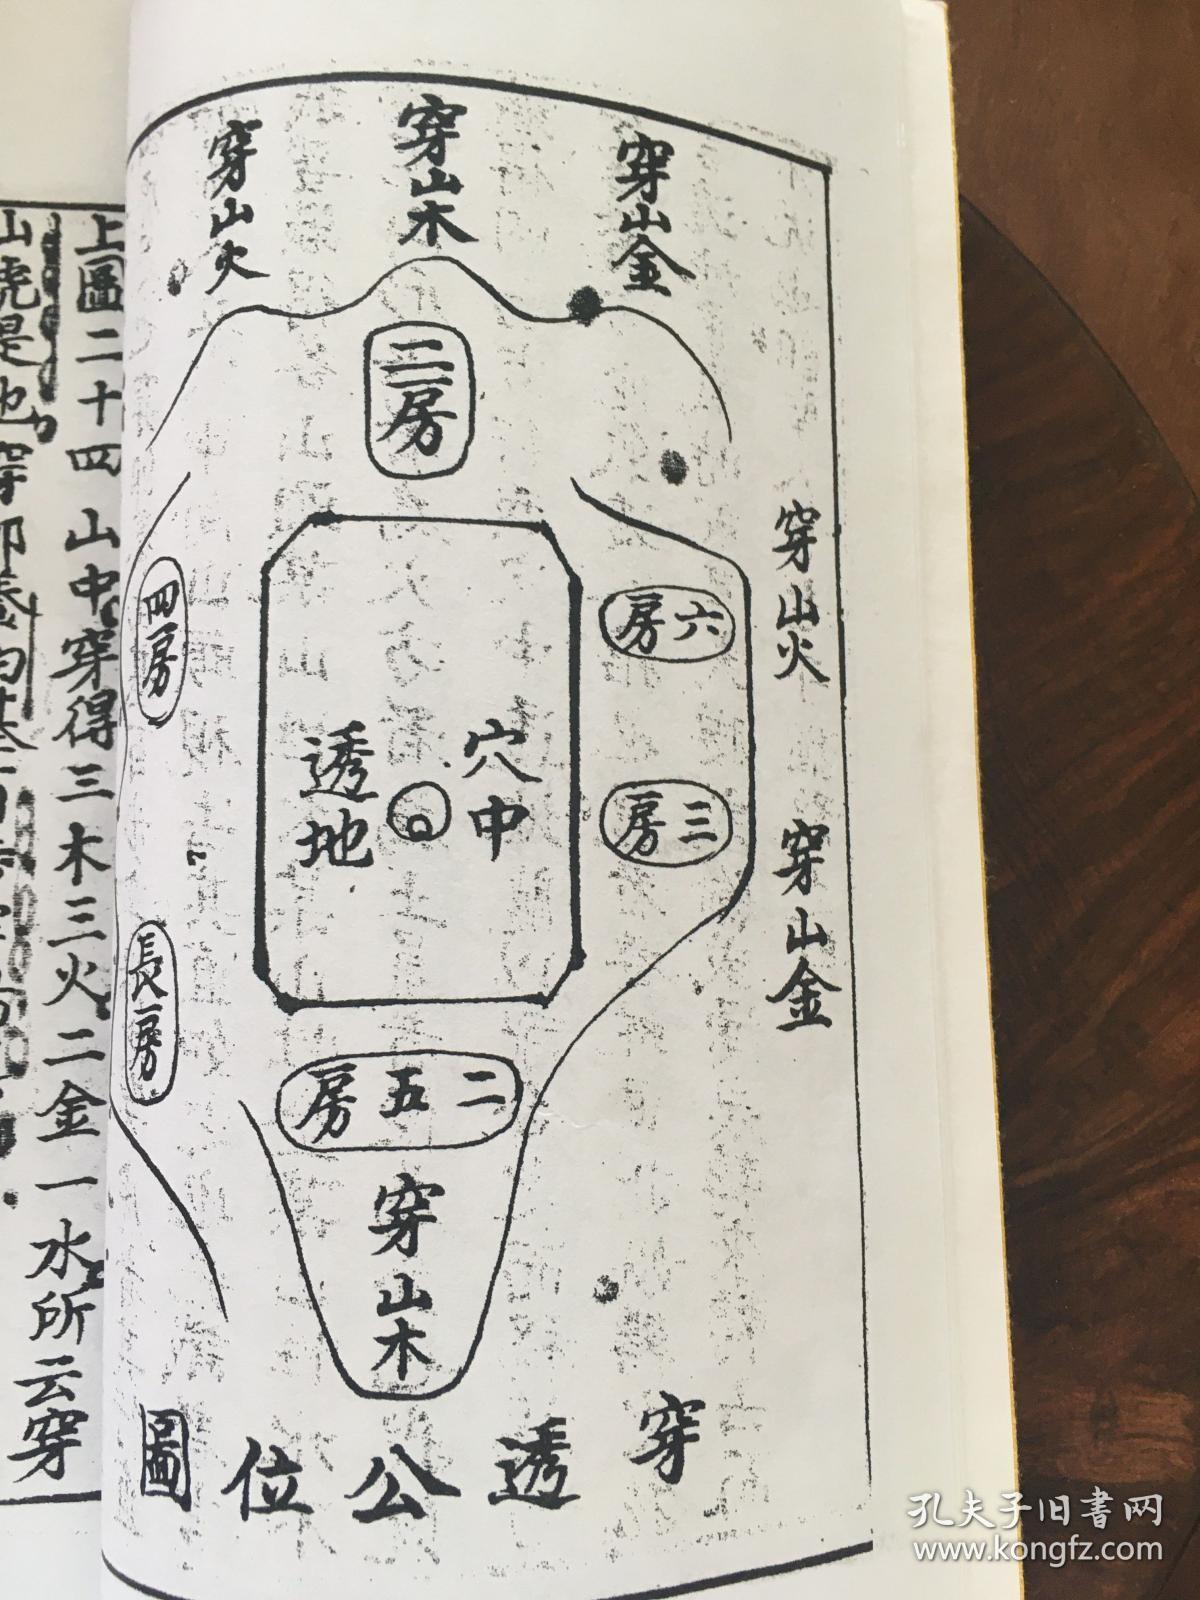 穿山金
穿山木
穿山火
二房
穿山火
穿山金
六房
三房
四房
長房
穴中
透地
二五房
穿山木
穿透公位圖
上圖二十四山中穿得三木三火二金一水所云穿
山
是地穿
孔夫子旧書网
www.kongfz.com